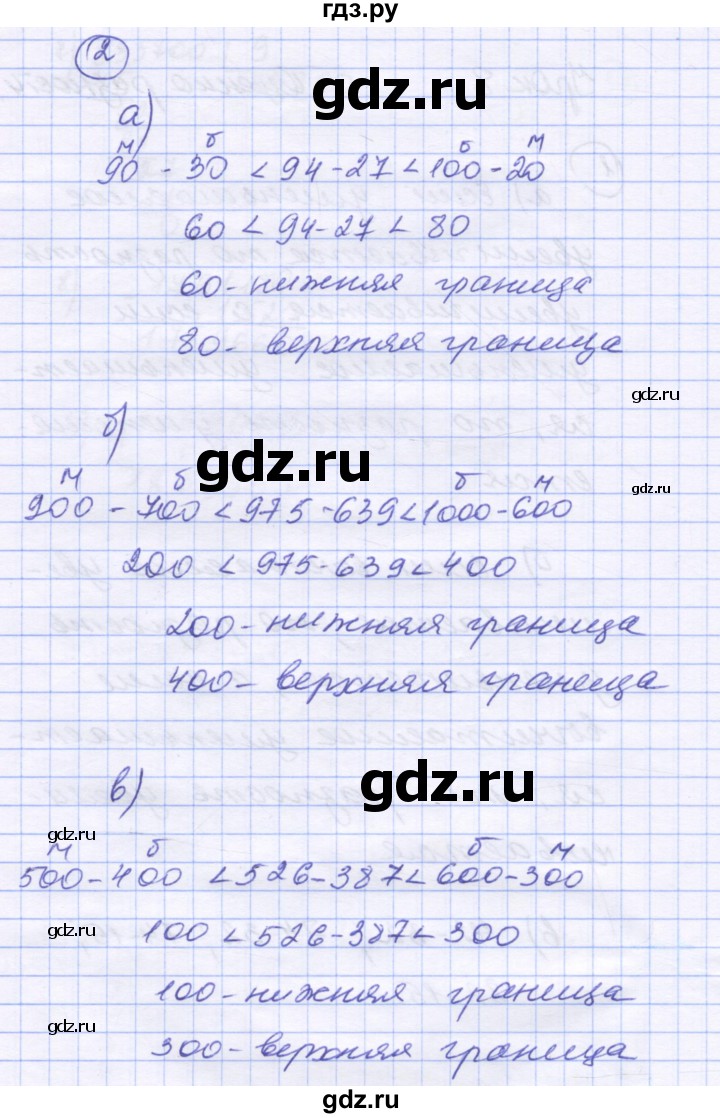 гдз.ру
2
gdz.ru
а)
м б б м
90 - 30 < 94 - 27 < 100 - 20
60 < 94 - 27 < 80
60 - нижняя граница
80 - верхняя граница
gdz.ru
б)
gdz.ru
gdz.ru
м б б м
900 - 700 < 975 - 639 < 1000 - 600
200 < 975 - 639 < 400
200 - нижняя граница
400 - верхняя граница
gdz.ru
в)
gdz.ru
м б б м
500 - 400 < 526 - 387 < 600 - 300
gdz.ru
100 < 526 - 387 < 300
100 - нижняя граница
gdz.ru
300 - верхняя граница
gdz.ru